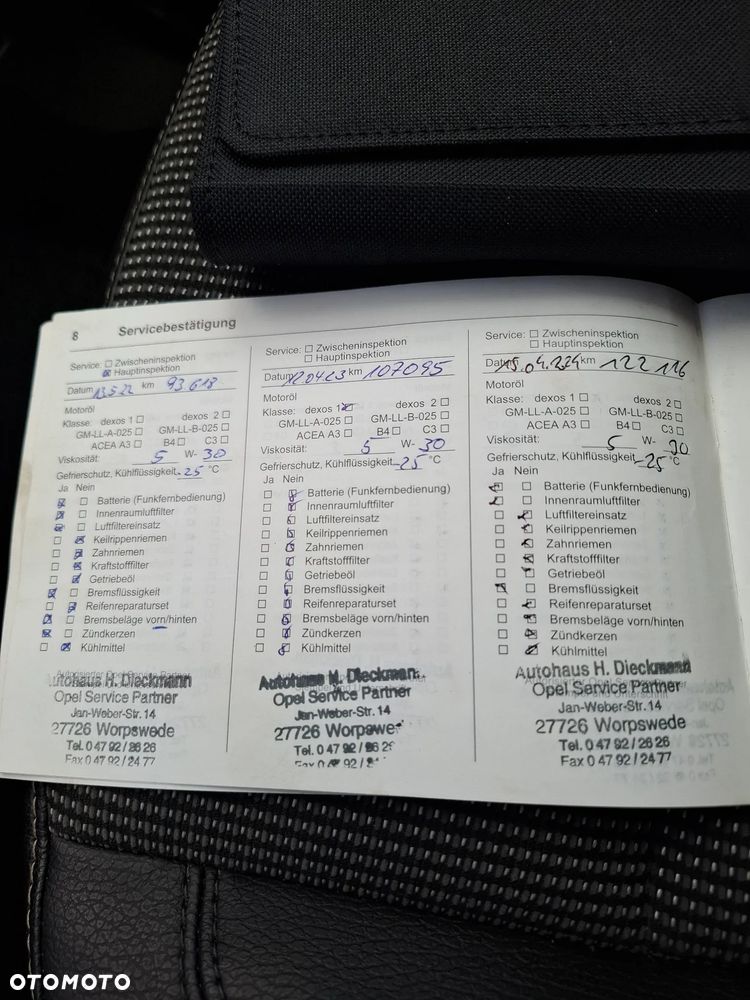 8 Servicebestätigung
Service: ☐ Zwischeninspektion
☒ Hauptinspektion
Datum 13.5.22 km 93.618
Motoröl
Klasse: dexos 1 ☐ dexos 2 ☐
GM-LL-A-025 ☐ GM-LL-B-025 ☐
ACEA A3 ☐ B4 ☐ C3 ☐
Viskosität: 5 W- 30
Gefrierschutz, Kühlflüssigkeit -25 °C
Ja Nein
☒ ☐ Batterie (Funkfernbedienung)
☒ ☐ Innenraumluftfilter
☒ ☐ Luftfiltereinsatz
☐ ☒ Keilrippenriemen
☐ ☒ Zahnriemen
☐ ☒ Kraftstofffilter
☐ ☒ Getriebeöl
☒ ☐ Bremsflüssigkeit
☐ ☒ Reifenreparaturset
☒ ☐ Bremsbeläge vorn/hinten
☒ ☐ Zündkerzen
☐ ☒ Kühlmittel
Autohaus H. Dieckmann
Opel Service Partner
Jan-Weber-Str. 14
27726 Worpswede
Tel. 0 47 92 / 26 26
Fax 0 47 92 / 24 77
Service: ☐ Zwischeninspektion
☐ Hauptinspektion
Datum km 107095
Motoröl
Klasse: dexos 1 ☒ dexos 2 ☐
GM-LL-A-025 ☐ GM-LL-B-025 ☐
ACEA A3 ☐ B4 ☐ C3 ☐
Viskosität: 5 W- 30
Gefrierschutz, Kühlflüssigkeit -25 °C
Ja Nein
☐ ☒ Batterie (Funkfernbedienung)
☐ ☒ Innenraumluftfilter
☐ ☒ Luftfiltereinsatz
☐ ☒ Keilrippenriemen
☐ ☒ Zahnriemen
☐ ☒ Kraftstofffilter
☐ ☒ Getriebeöl
☐ ☒ Bremsflüssigkeit
☐ ☒ Reifenreparaturset
☐ ☒ Bremsbeläge vorn/hinten
☐ ☒ Zündkerzen
☐ ☒ Kühlmittel
Autohaus H. Dieckmann
Opel Service Partner
Jan-Weber-Str. 14
27726 Worpswe
Tel. 0 47 92 / 26 26
Fax 0 47 92 /
Service: ☐ Zwischeninspektion
☐ Hauptinspektion
Datum km 122 116
Motoröl
Klasse: dexos 1 ☐ dexos 2 ☐
GM-LL-A-025 ☐ GM-LL-B-025 ☐
ACEA A3 ☐ B4 ☐ C3 ☐
Viskosität: 5 W- 30
Gefrierschutz, Kühlflüssigkeit -25 °C
Ja Nein
☒ ☐ Batterie (Funkfernbedienung)
☒ ☐ Innenraumluftfilter
☐ ☒ Luftfiltereinsatz
☐ ☒ Keilrippenriemen
☐ ☒ Zahnriemen
☐ ☒ Kraftstofffilter
☐ ☒ Getriebeöl
☒ ☐ Bremsflüssigkeit
☐ ☒ Reifenreparaturset
☐ ☒ Bremsbeläge vorn/hinten
☐ ☒ Zündkerzen
☐ ☒ Kühlmittel
Autohaus H. Dieckmann
Opel Service Partner
Jan-Weber-Str. 14
27726 Worpswede
Tel. 0 47 92 / 26 26
Fax 0 47 92 / 24 77
OTOMOTO